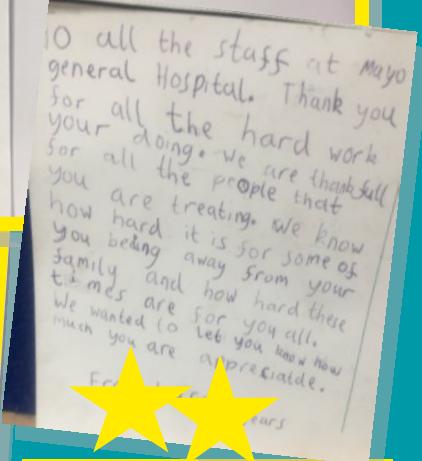 TO all the staff at Mayo
general Hospital. Thank you
for all the hard work
your doing. We are thankfull
for all the people that
you are treating. We know
how hard it is for some of
you being away from your
family and how hard these
times are for you all.
We wanted to let you know how
much you are appreciatde.